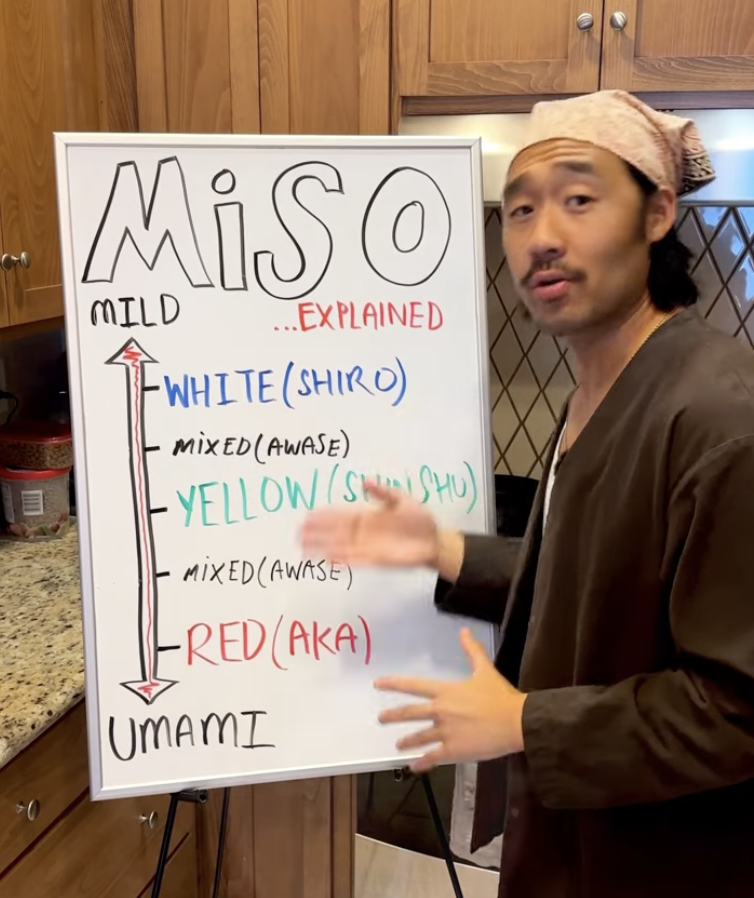 MiSO
MILD
...EXPLAINED
WHITE(SHIRO)
MIXED(AWASE)
YELLOW(SHINSHU)
MIXED(AWASE)
RED(AKA)
UMAMI